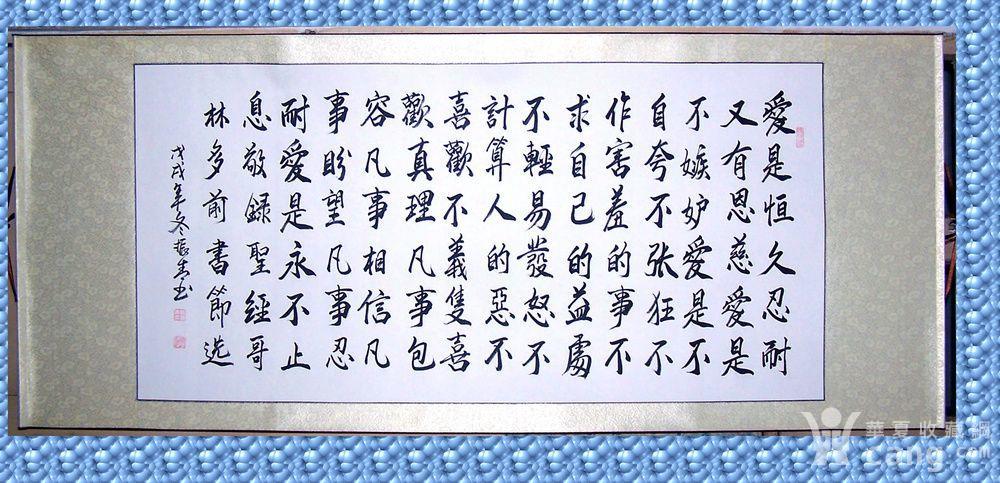 愛是恒久忍耐
又有恩慈愛是
不嫉妒愛是不
自夸不张狂不
作害羞的事不
求自己的益處
不輕易發怒不
計算人的惡不
喜歡不義隻喜
歡真理凡事包
容凡事相信凡
事盼望凡事忍
耐愛是永不止
息敬録聖經哥
林多前書節選
戊戌年冬振书
華夏收藏網
cang.com